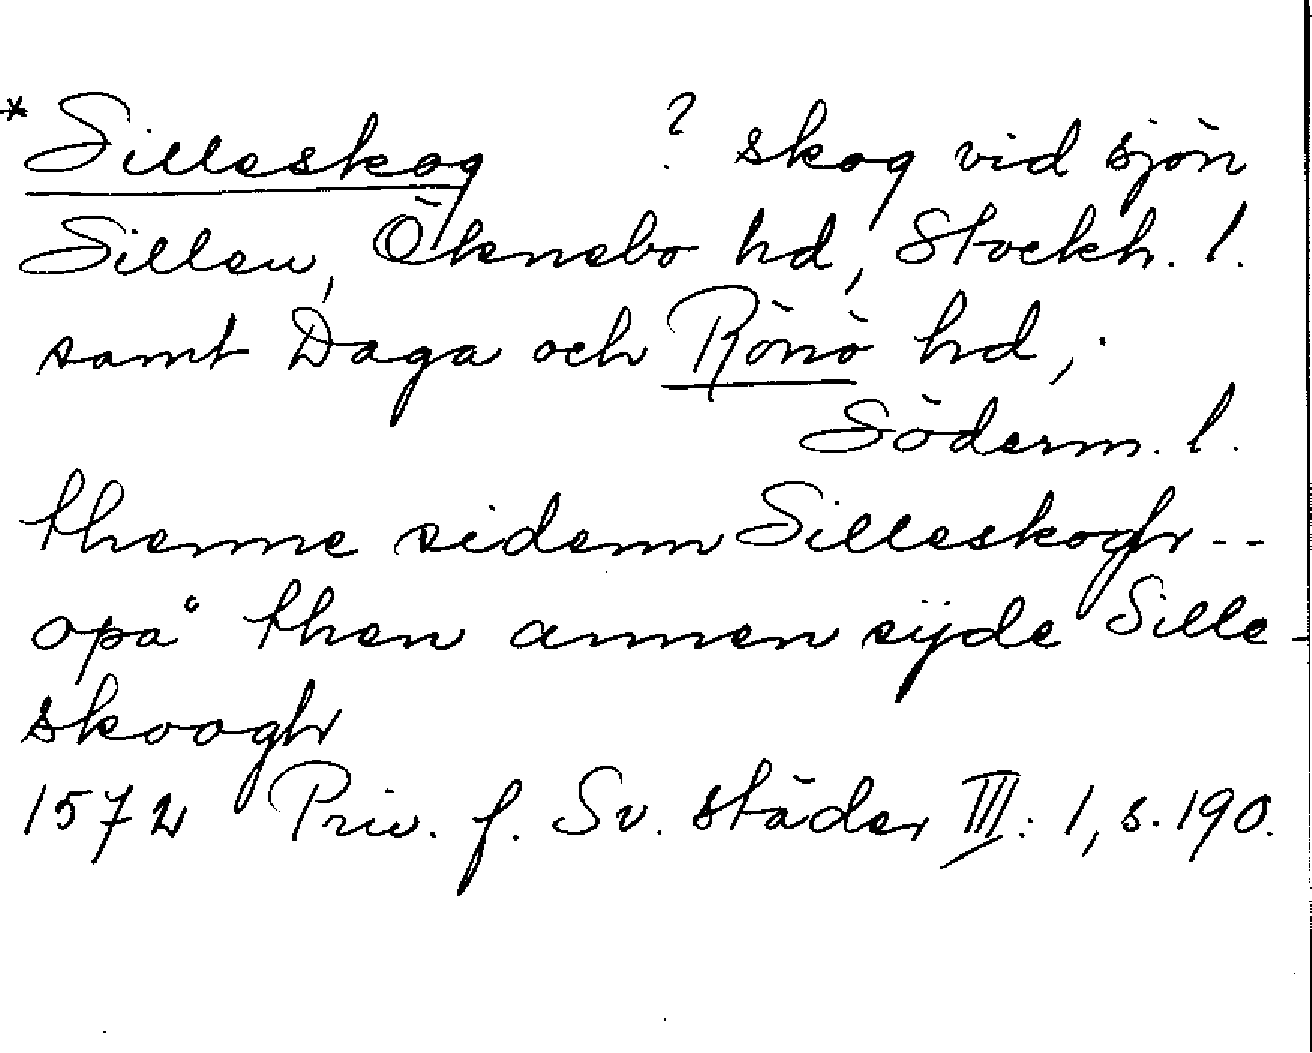 * Silleskog ? skog vid sjön
Sillen, Öknebo hd, Stockh. l.
samt Daga och Rönö hd,
Söderm. l.
thenne sidenn Silleskogh --
opå then annen sijde Sille-
skoogh
1572 Priv. f. Sv. städer III: 1, s. 190.